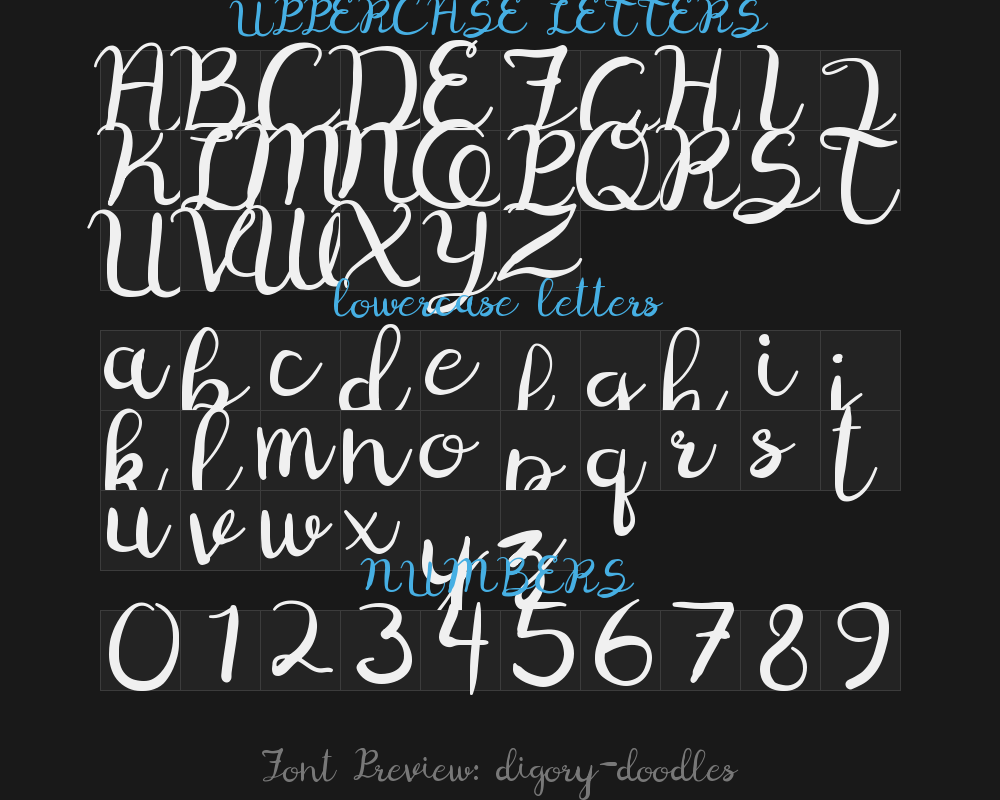 UPPERCASE LETTERS
A B C D E F G H I J
K L M N O P Q R S T
U V W X Y Z
lowercase letters
a b c d e f g h i j
k l m n o p q r s t
u v w x y z
NUMBERS
0 1 2 3 4 5 6 7 8 9
Font Preview: digory-doodles